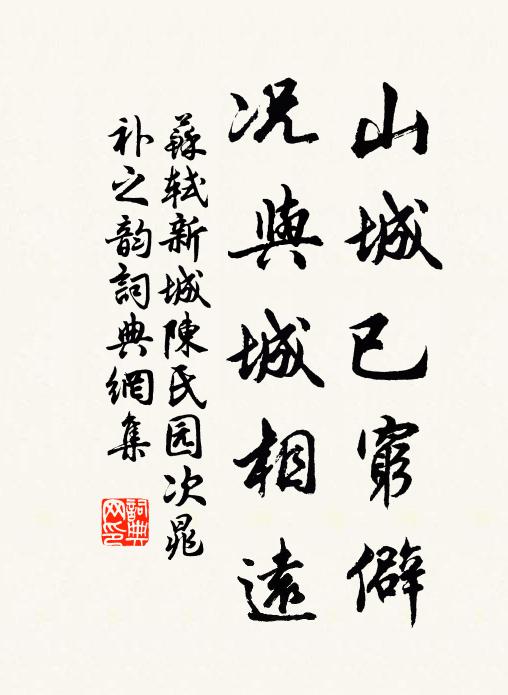 山城已窮僻
况與城相遠
蘇軾新城陳氏园次晁
补之韵詞典網集
詞典
网印